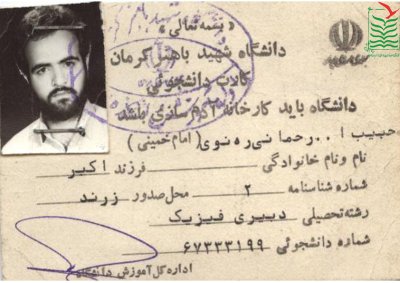 «بسمه تعالی»
دانشگاه شهید باهنر کرمان
کارت دانشجوئی
دانشگاه باید کارخانه آدم سازی باشد
(امام خمینی)
حبیب ا.. رحمانی
نام و نام خانوادگی فرزند اکبر
شماره شناسنامه ۲ محل صدور زرند
رشته تحصیلی دبیری فیزیک
شماره دانشجوئی ۶۷۳۳۳۱۹۹
اداره کل آموزش دانشگاه